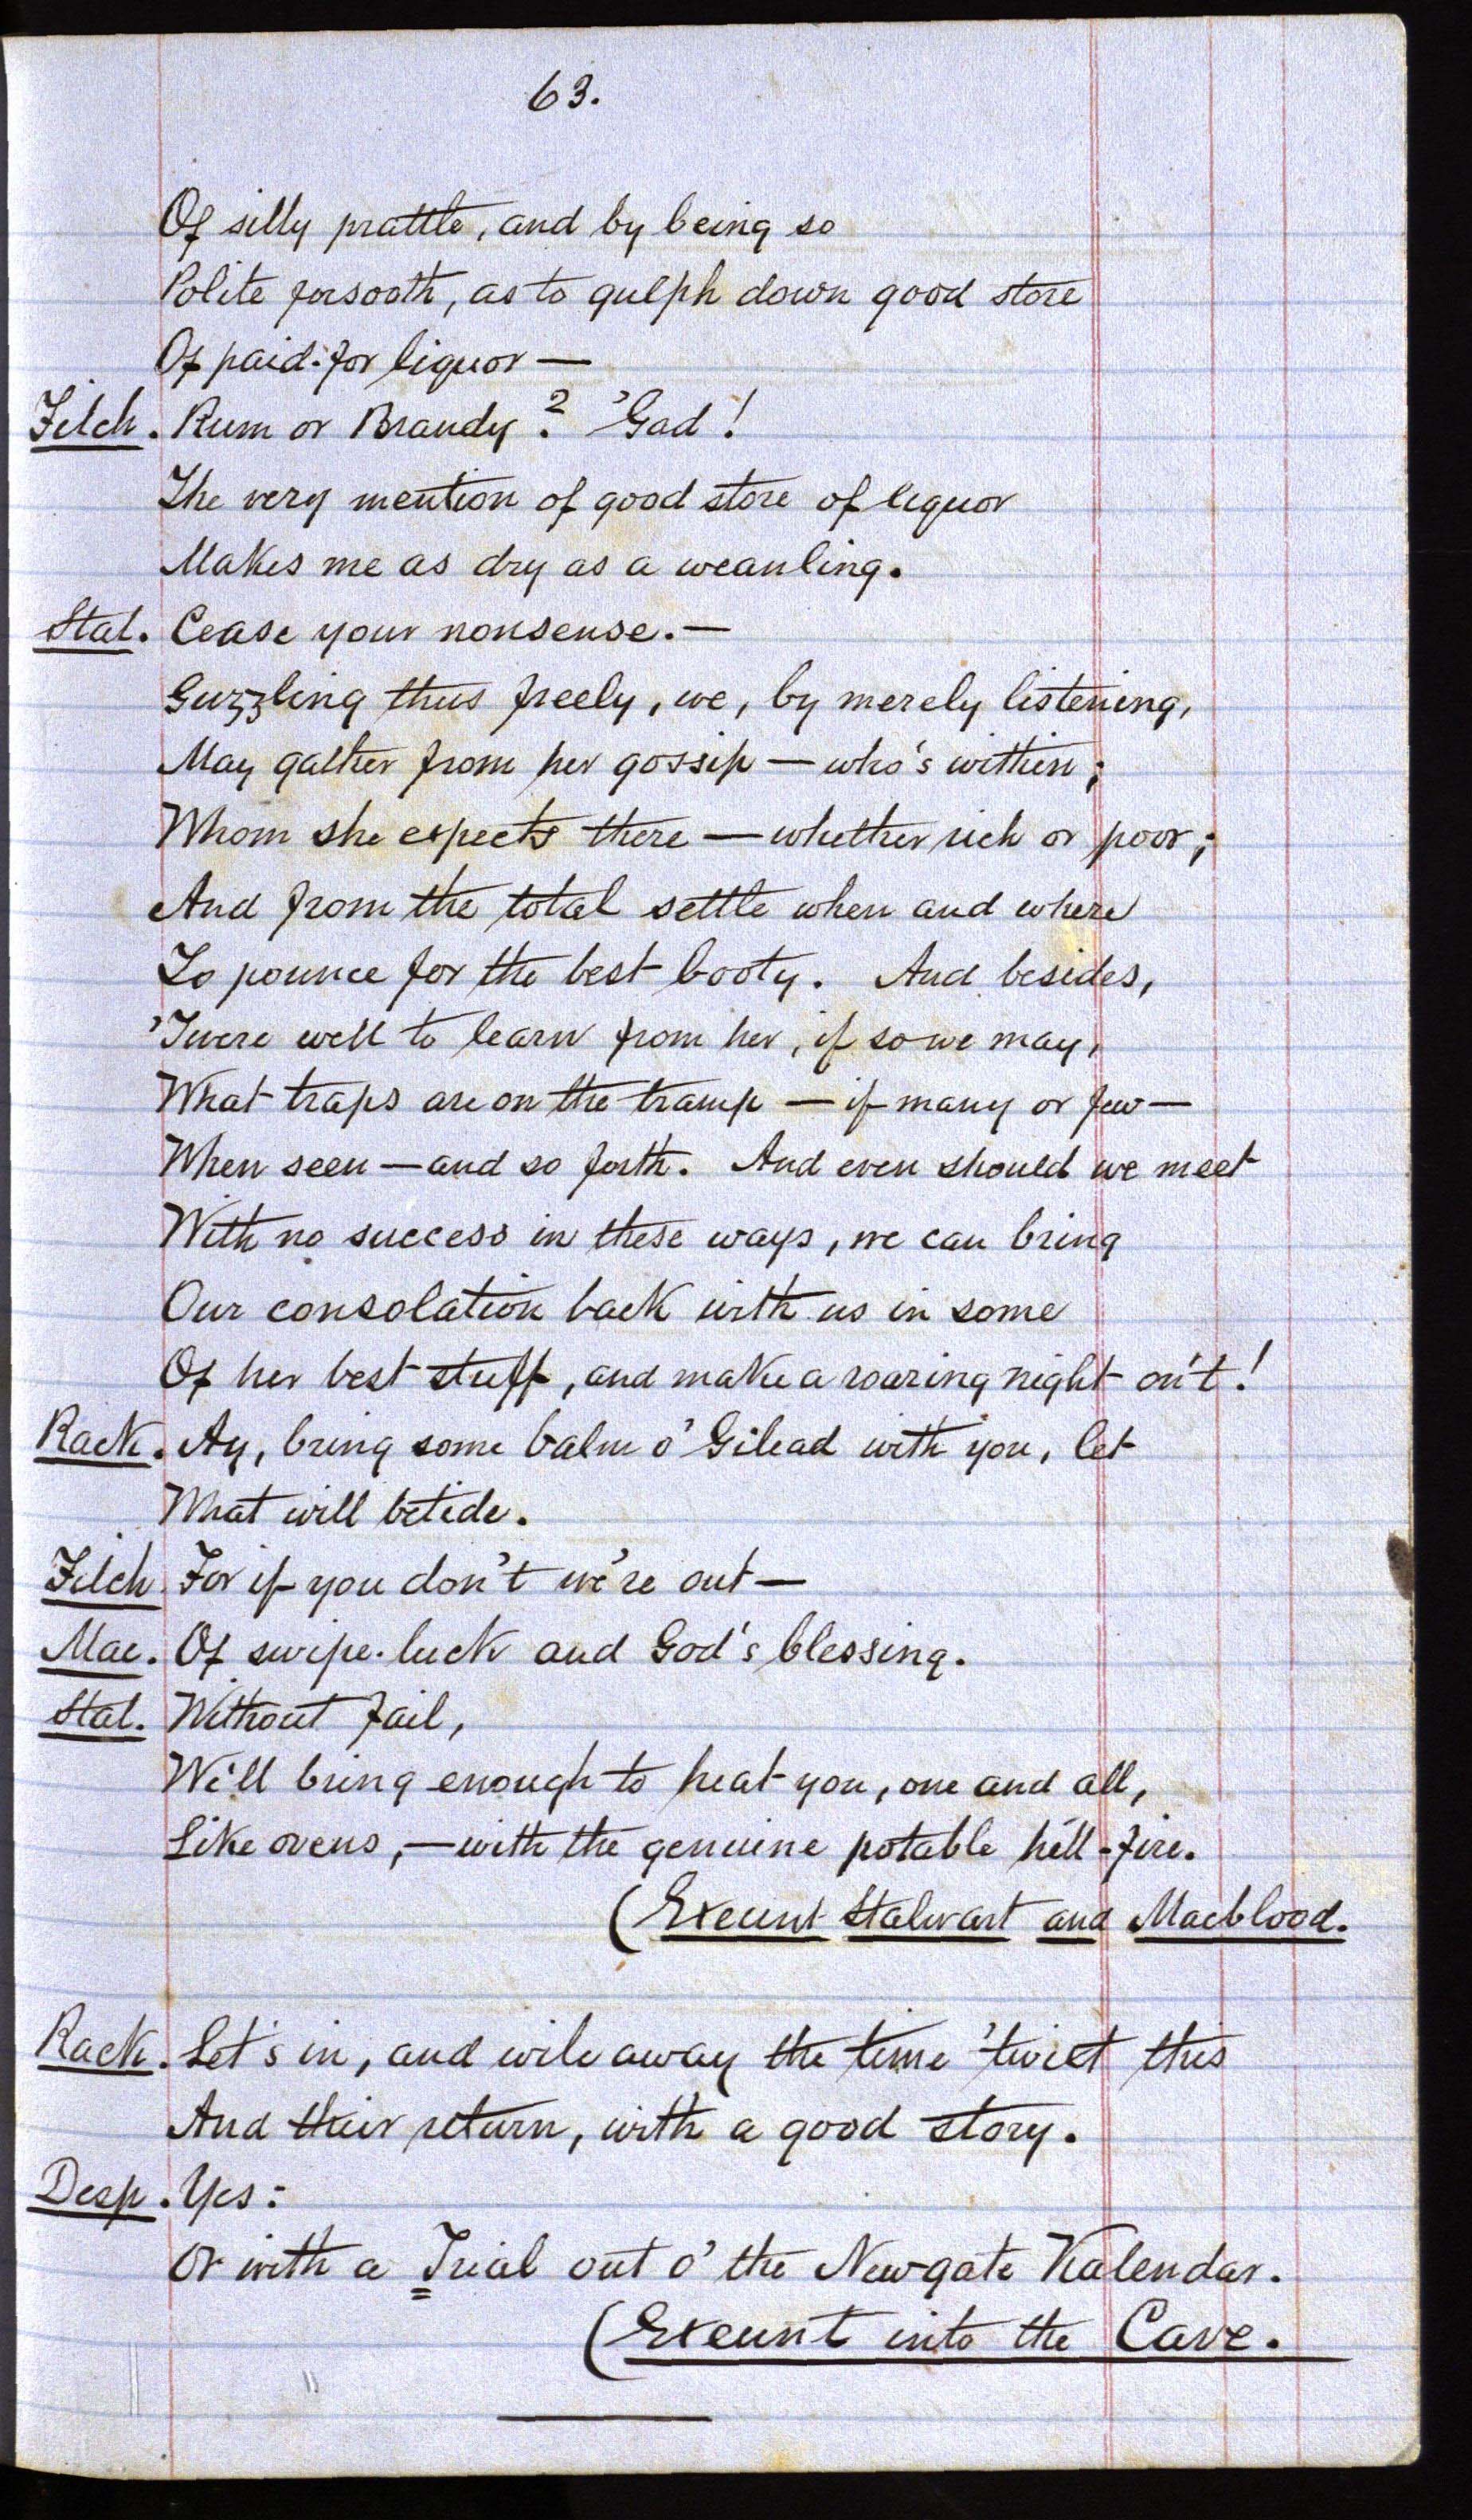 63.
Of silly prattle, and by being so
Polite forsooth, as to gulph down good store
Of paid-for liquor —
Filch. Rum or Brandy? 'Gad!
The very mention of good store of liquor
Makes me as dry as a weanling.
Stal. Cease your nonsense. —
Guzzling thus freely, we, by merely listening,
May gather from her gossip — who's within;
Whom she expects there — whether rich or poor;
And from the total settle when and where
To pounce for the best booty. And besides,
'Twere well to learn from her, if so we may,
What traps are on the tramp — if many or few —
When seen — and so forth. And even should we meet
With no success in these ways, we can bring
Our consolation back with us in some
Of her best stuff, and make a roaring night on't!
Rack. Ay, bring some balm o' Gilead with you, let
What will betide.
Filch For if you don't we're out —
Mac. Of swipe-luck and God's blessing.
Stal. Without fail,
We'll bring enough to heat you, one and all,
Like ovens, — with the genuine potable hell-fire.
(Exeunt Stalwart and Macblood.
Rack. Let's in, and wile away the time 'twixt this
And their return, with a good story.
Desp. Yes:
Or with a Trial out o' the Newgate Kalendar.
(Exeunt into the Cave.